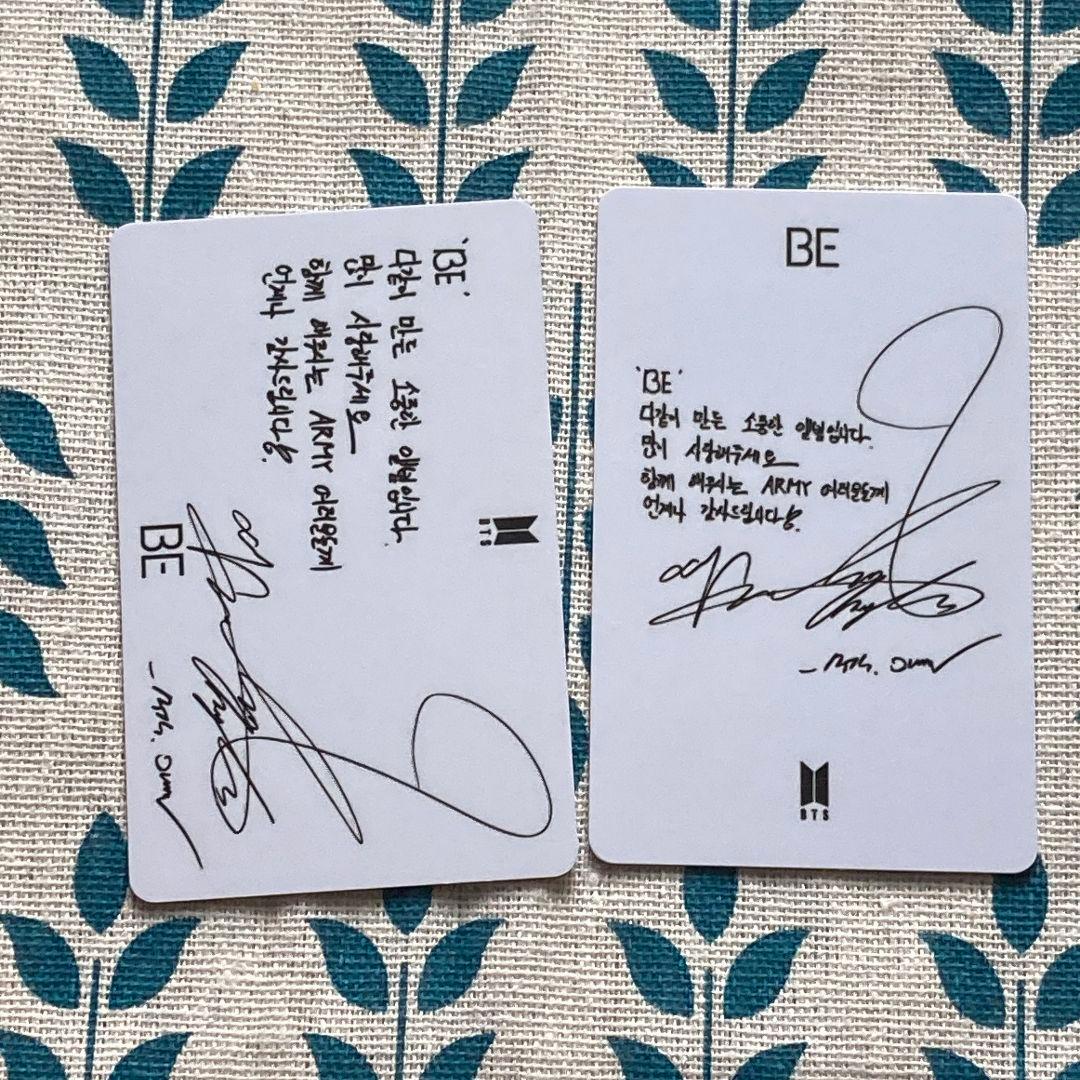 'BE'
다같이 만든 소중한 앨범입니다.
많이 사랑해주세요
함께 ARMY 여러분들께
언제나 감사드립니다.
BTS
BE
BE
'BE'
다같이 만든 소중한 앨범입니다.
많이 사랑해주세요
함께 ARMY 여러분들께
언제나 감사드립니다.
BTS